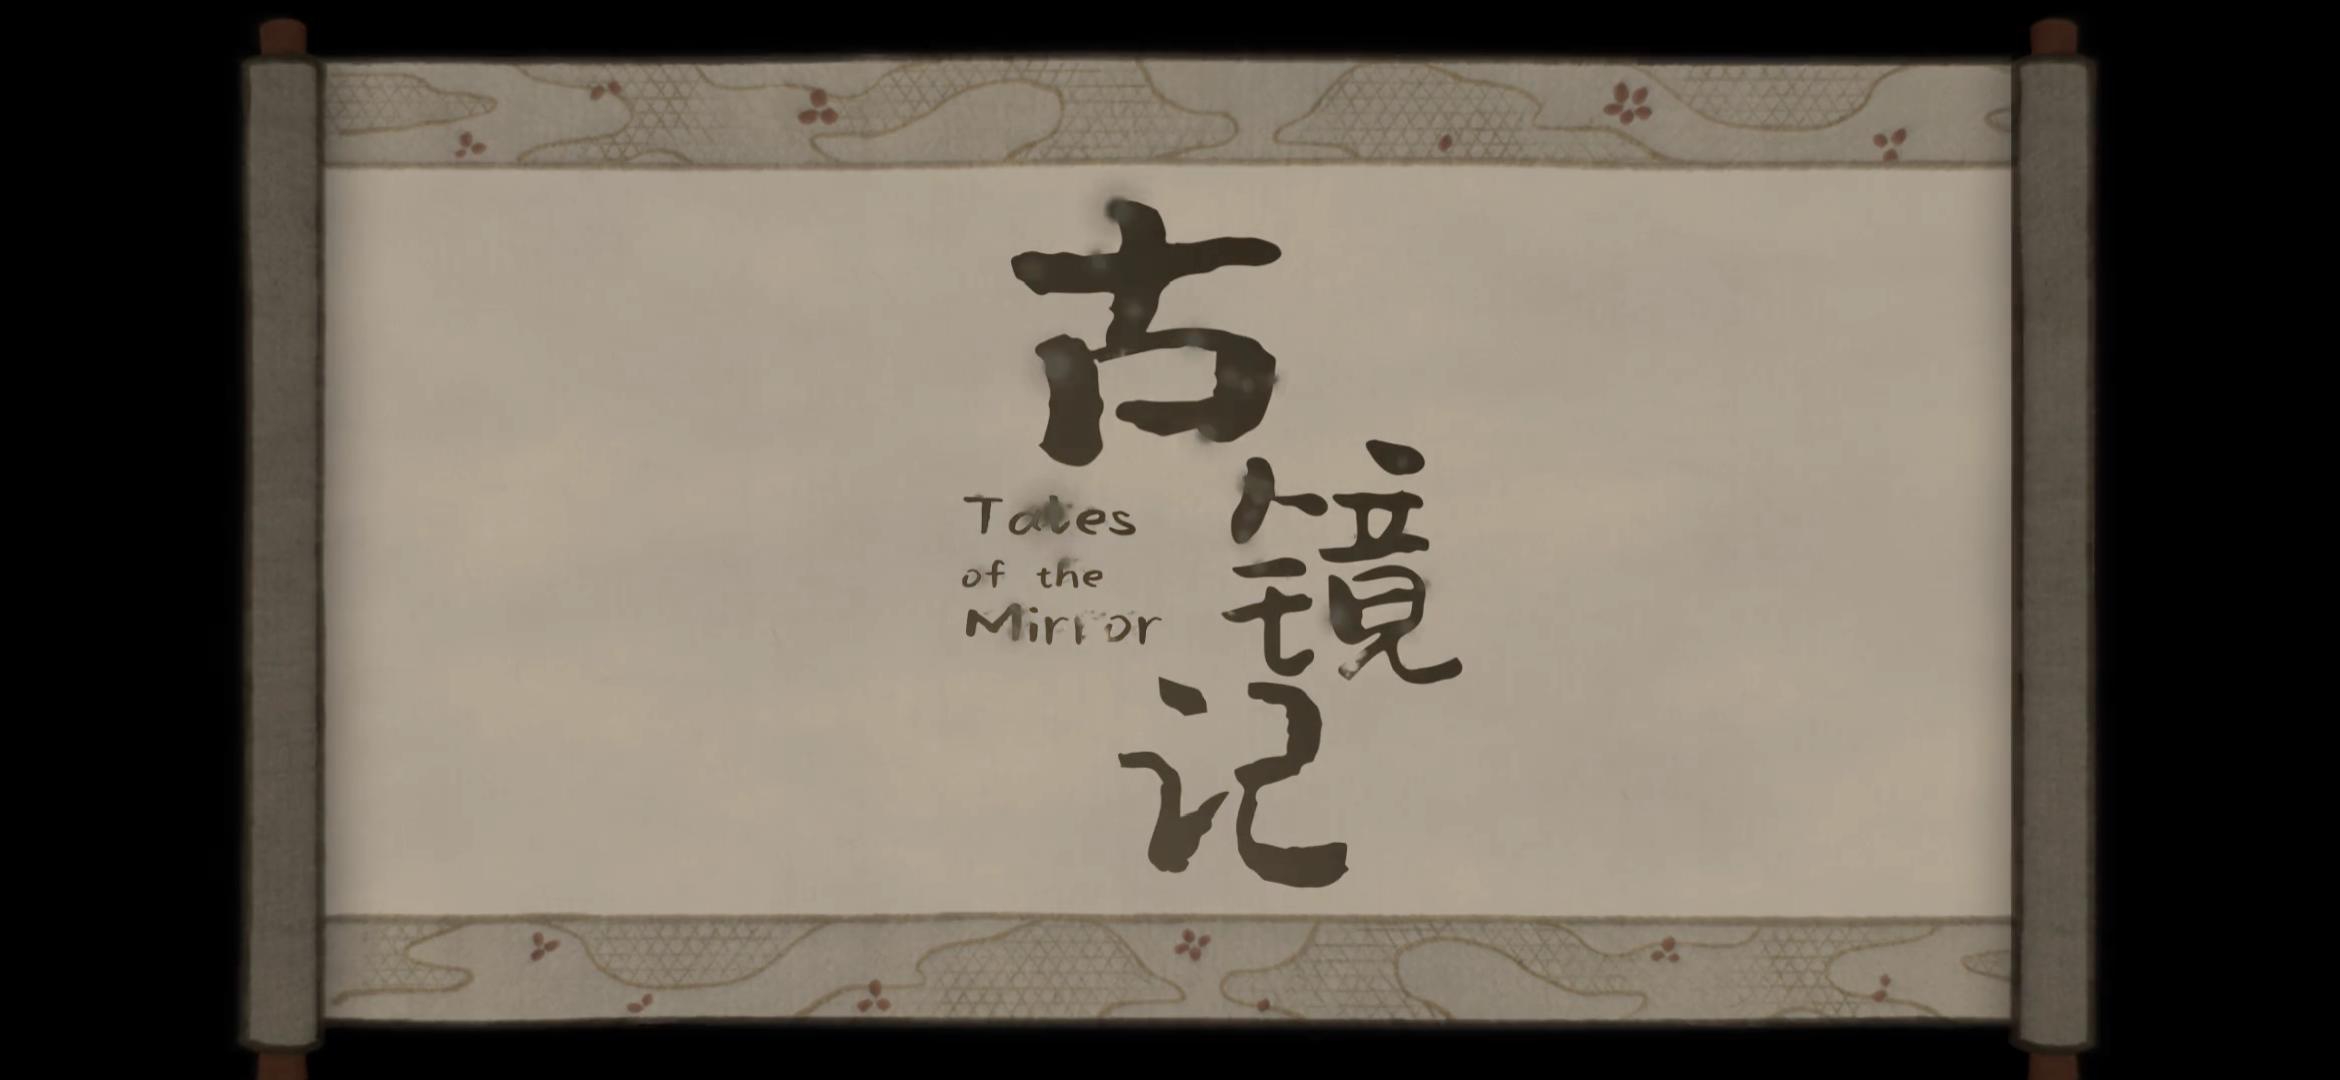 古镜记
Tales
of the
Mirror